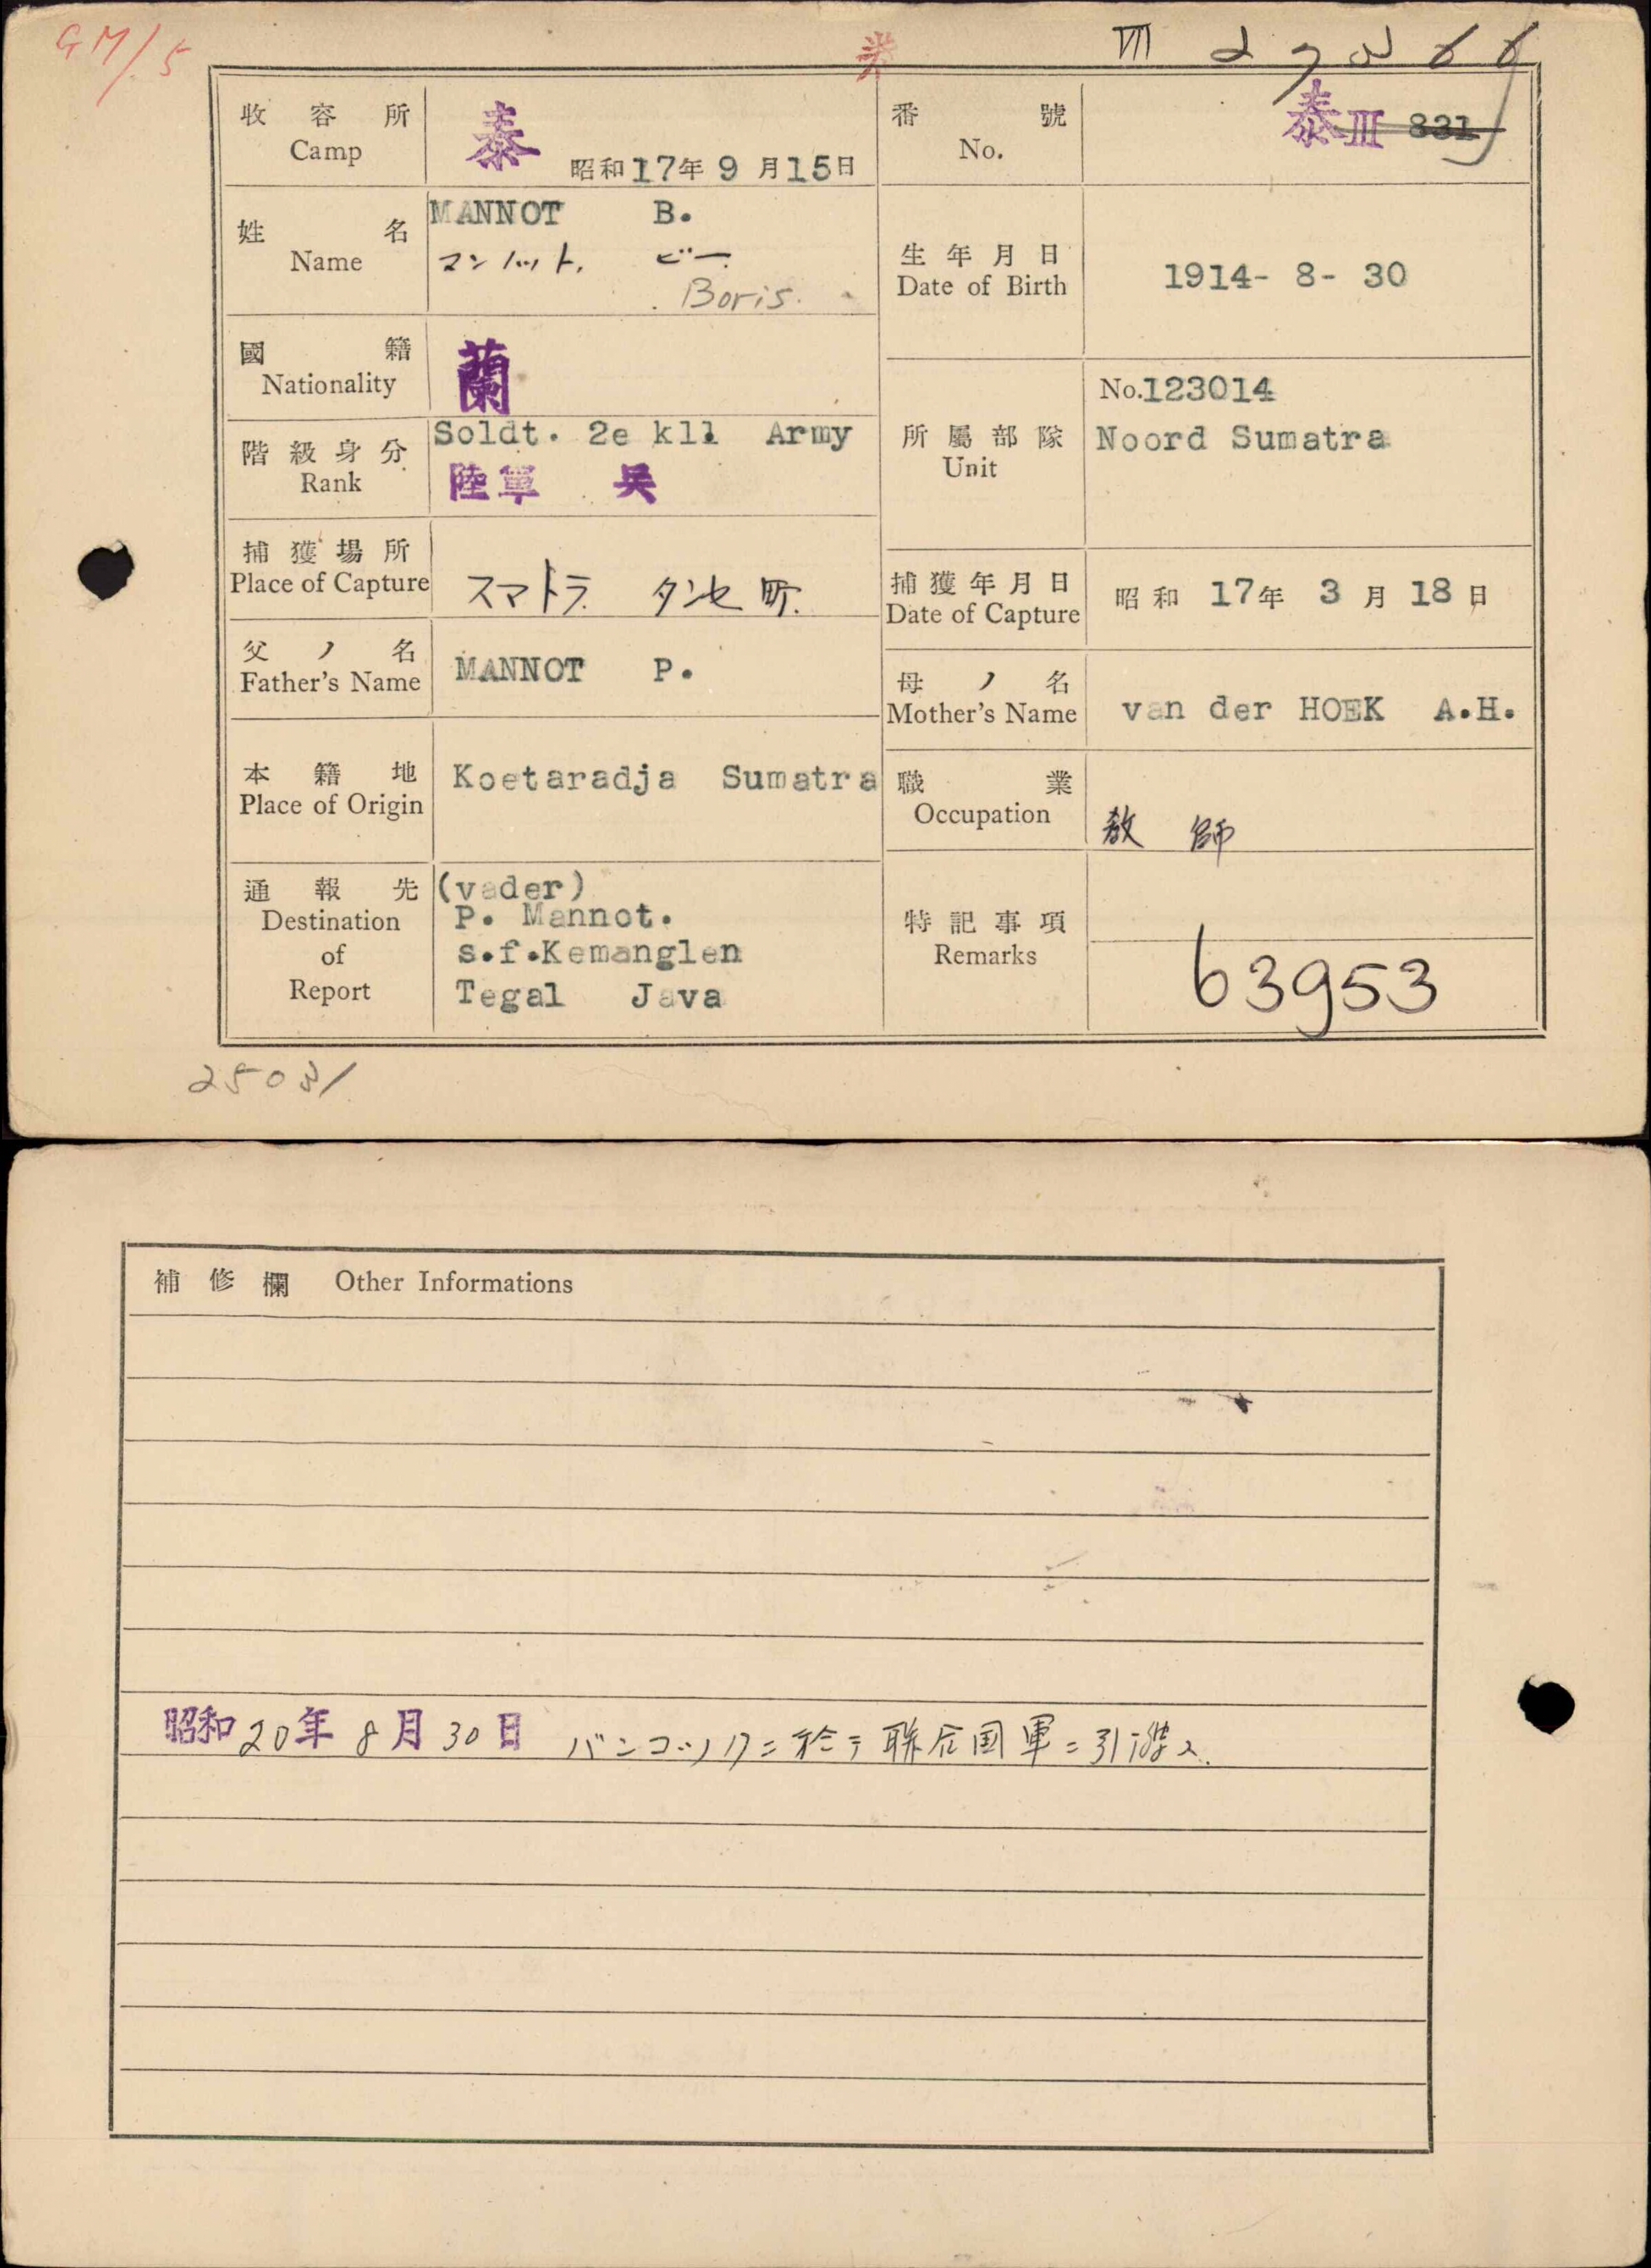 GM/.5
収容所
Camp
泰
昭和17年9月15日
番號
No.
泰III 831
姓名
Name
MANNOT B.
マンノット. ビー.
Boris.
生年月日
Date of Birth
1914- 8- 30
國籍
Nationality
蘭
階級身分
Rank
Soldt. 2e kll Army
陸軍 兵
所屬部隊
Unit
No.123014
Noord Sumatra
捕獲場所
Place of Capture
スマトラ. タンセ町.
捕獲年月日
Date of Capture
昭和 17年 3月 18日
父ノ名
Father's Name
MANNOT P.
母ノ名
Mother's Name
van der HOEK A.H.
本籍地
Place of Origin
Koetaradja Sumatra
職業
Occupation
教師
通報先
Destination
of
Report
(vader)
P. Mannot.
s.f.Kemanglen
Tegal Java
特記事項
Remarks
63953
25031
補修欄 Other Informations
昭和20年8月30日 バンコックニ於テ聯合国軍ニ引渡ス.